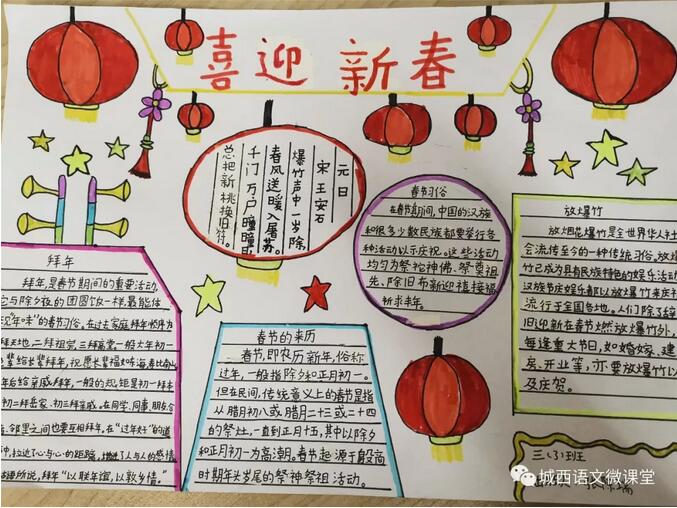 喜迎新春
元日
宋 王安石
爆竹声中一岁除
春风送暖入屠苏。
千门万户曈曈日
总把新桃换旧符。
春节习俗
在春节期间,中国的汉族
和很多少数民族都要举行各
种活动以示庆祝。这些活动
均为祭祀神佛、祭奠祖
先、除旧布新迎禧接福
祈求丰年。
放爆竹
放烟花爆竹是全世界华人社
会流传至今的一种传统习俗。放爆
竹已成为具有民族特色的娱乐活动
汉族节庆娱乐都以放爆竹来庆祝
流行于全国各地。人们除了辞
旧迎新在春节燃放爆竹外,
每逢重大节日,如婚嫁、建
房、开业等,亦要放爆竹以
及庆贺。
拜年
拜年,是春节期间的重要活动,
它与除夕夜的团圆饭一样最能体
现"年味"的春节习俗。在过去家庭拜年顺序为
拜天地,二拜祖宗,三拜高堂,一般大年初一
辈给长辈拜年,祝愿长辈福如海,寿比南山
年后给亲戚拜年,一般的规矩是初一拜本
初二拜岳家、初三拜亲戚。在同学、同事、朋友
、邻里之间也要互相拜年。在"过年好"的道
中,拉近了心与心的距离,增进了人与人的感情
所说,拜年"以联年谊,以敦乡情。"
春节的来历
春节,即农历新年,俗称
过年,一般指除夕和正月初一。
但在民间,传统意义上的春节是指
从腊月初八或腊月二十三或二十四
的祭灶,一直到正月十五,其中以除夕
和正月初一为高潮。春节起源于殷商
时期年头岁尾的祭神祭祖活动。
班
城西语文微课堂